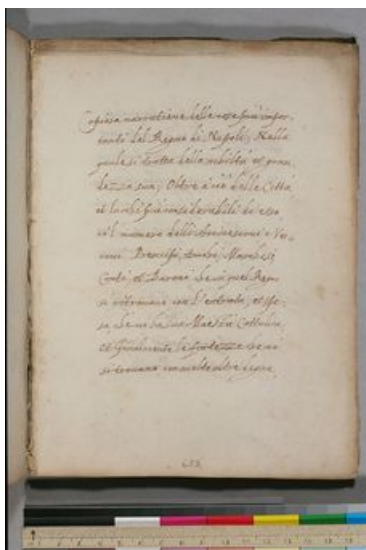 Copiosa narratione delle cose più impor-
tanti del Regno di Napoli; Nella
quale si tratta della nobiltà et gran
dezza sua; Oltre a ciò delle Città
et luochi più considerabili di esso
co'l numero delli Arcivescovi e Ves-
covi Prencipi, Duchi, Marchesi
Conti, et Baroni che in quel Regno
si ritrovano con l'entrada, et spe-
sa, che ne ha sua Maestà Cattolica,
et finalmente le fortezze che vi
si trovano con molte altre